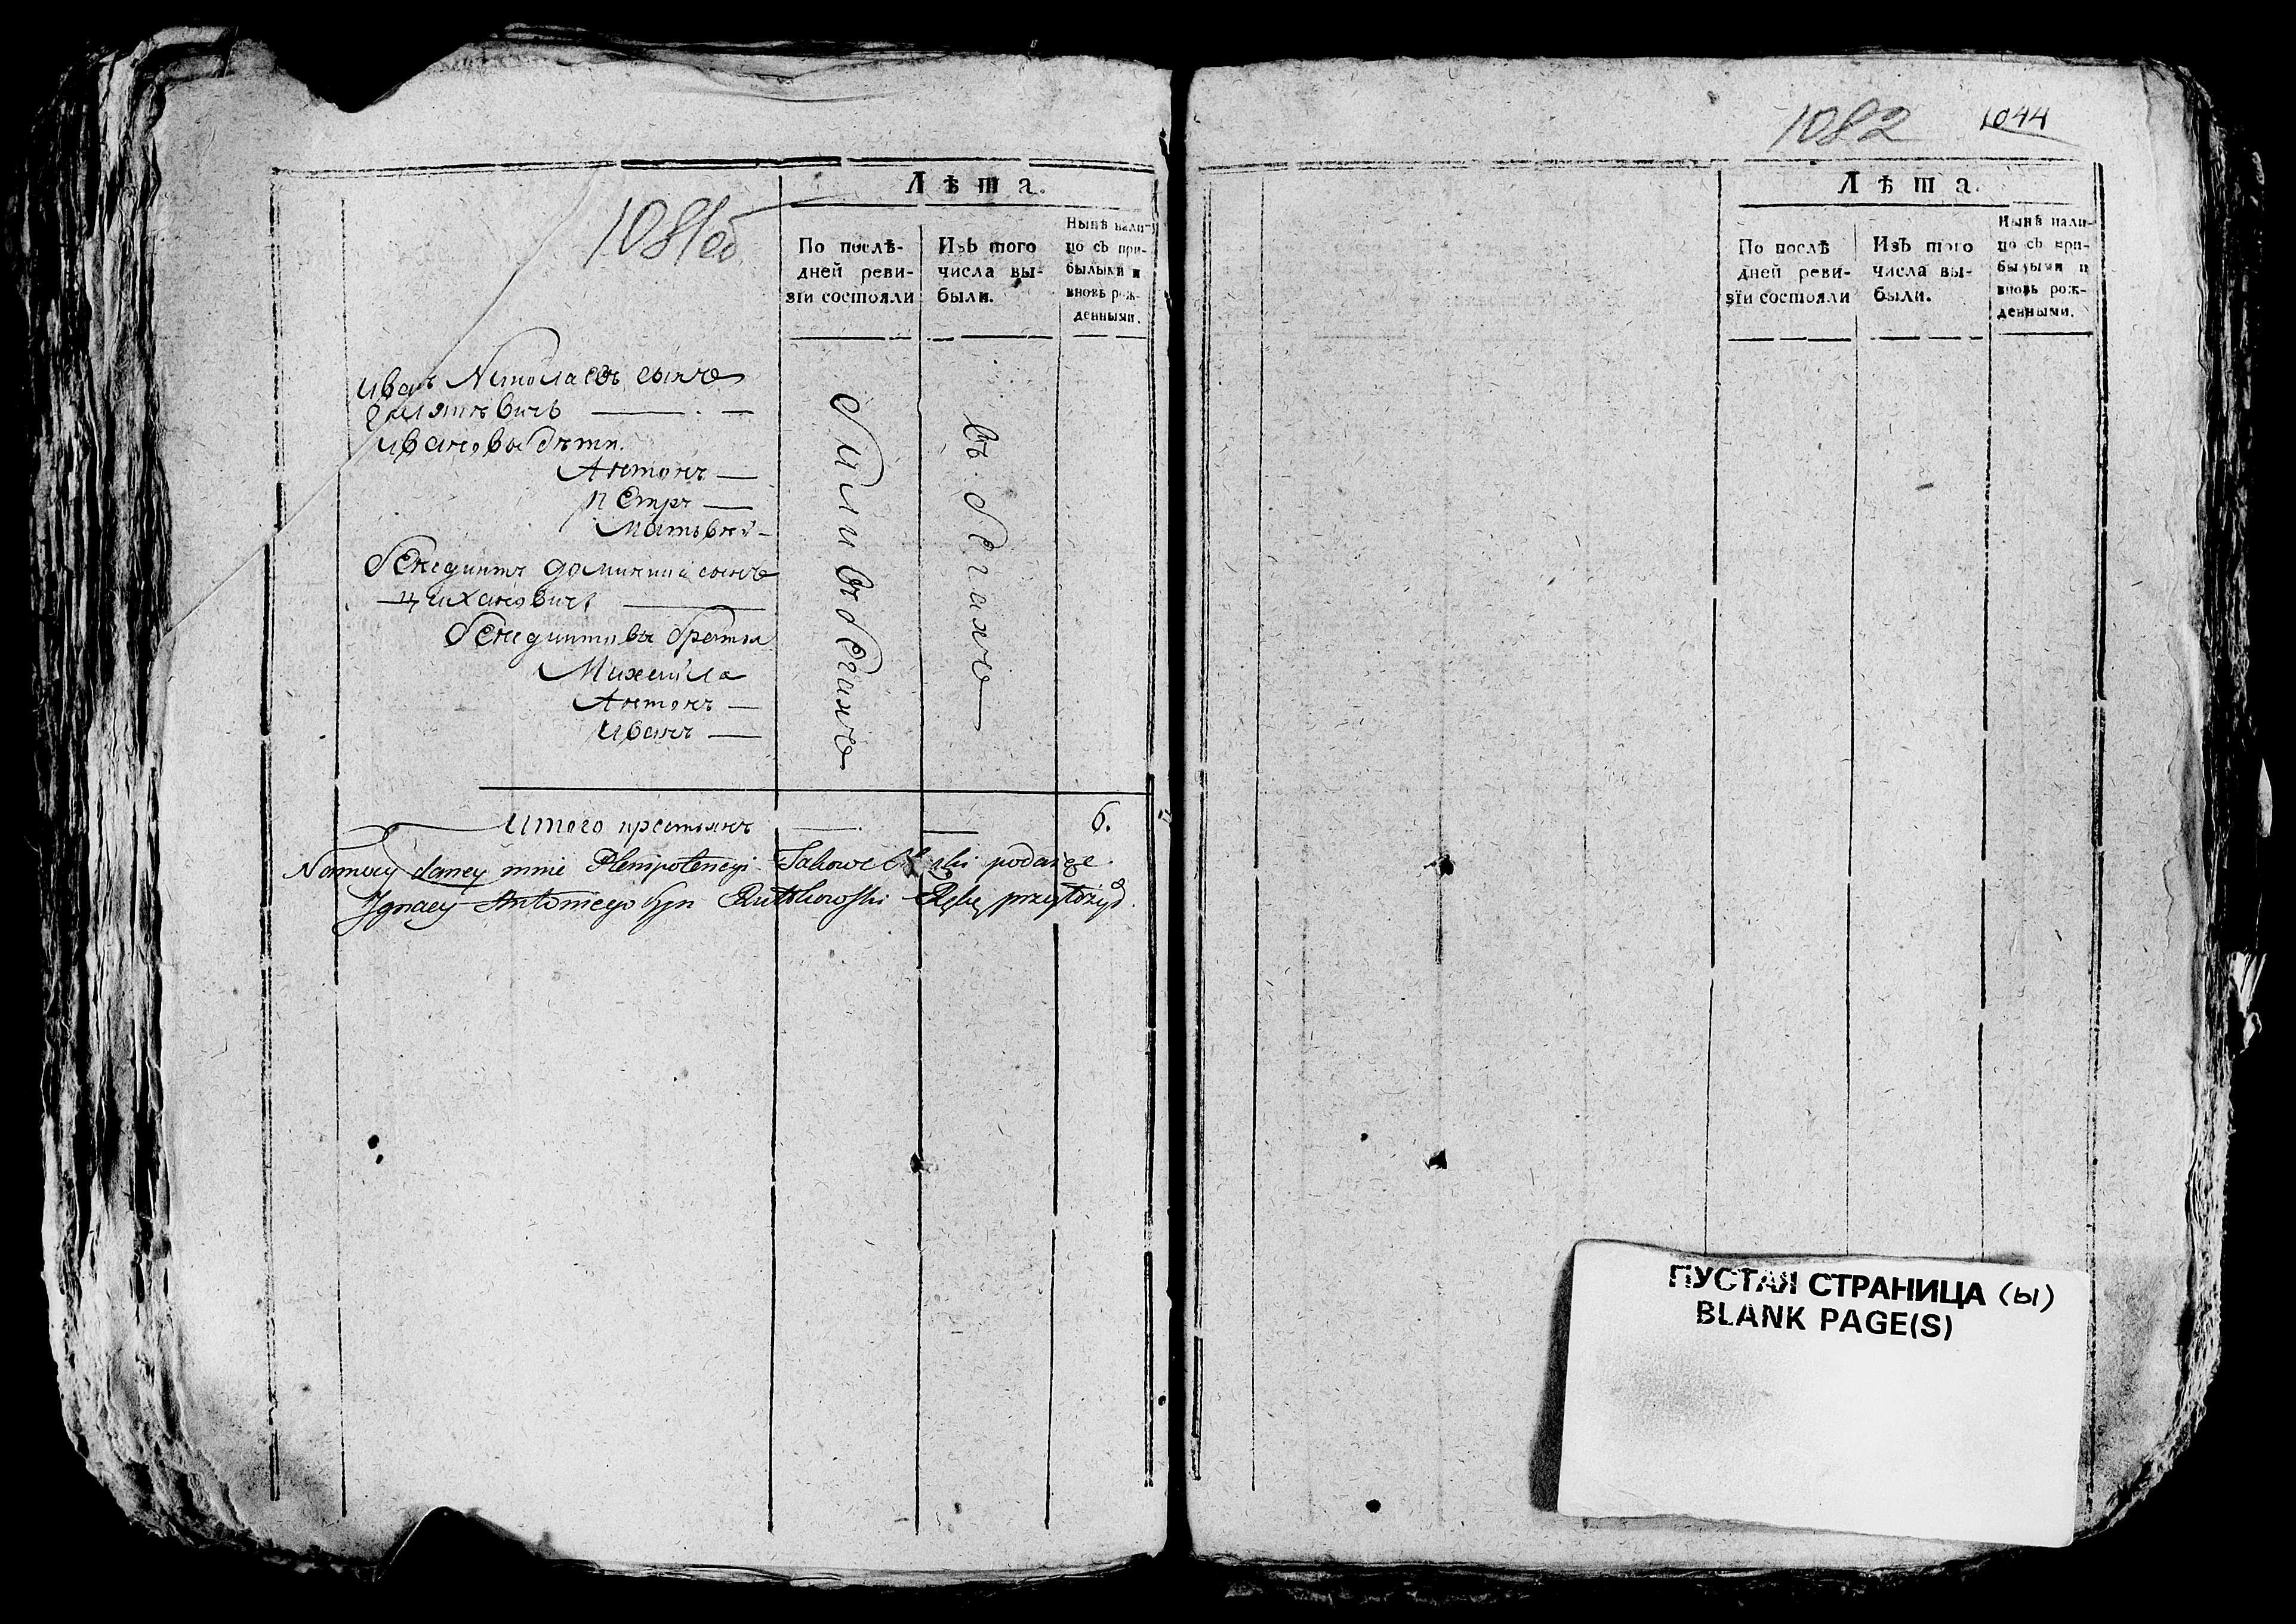 1081об
Лѣта.
По послѣ-
дней реви-
зіи состояли
Изъ того
числа вы-
были.
Нынѣ нали-
цо съ при-
былыми и
вновь рож-
денными.
Иванъ Николаевъ сынъ
Иванов​ы дѣти.
Антонъ —
Петръ —
Матвей —
Бенедиктъ Доминика сынъ
Цихановичъ —
Бенедиктовы братья
Михайла
Антонъ —
Иванъ —
были въ бегахъ
въ бегахъ
Итого крестьянъ — — 6.
Na mocy daney mnie Plenipotencyi Takowe Skaski podaiąc
Ignacy Antoniego Syn Rutkowski Rękę przyłożył.
1082 1044
Лѣта.
По послѣ
дней реви-
зіи состояли
Изъ того
числа вы-
были.
Нынѣ нали-
цо съ при-
былыми и
вновь рож-
денными.
ПУСТАЯ СТРАНИЦА (Ы)
BLANK PAGE(S)